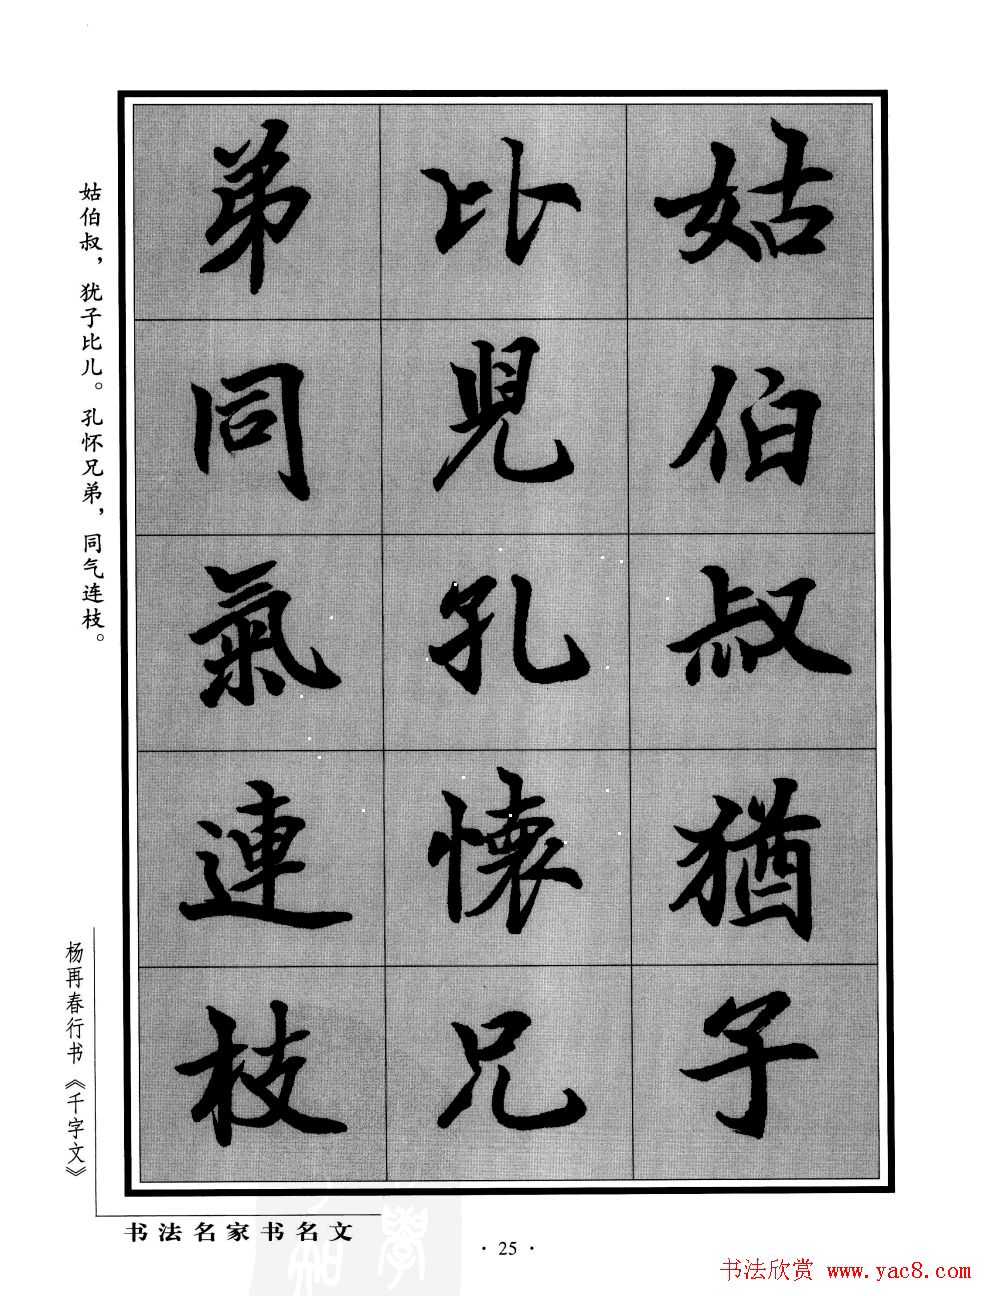 姑伯叔猶子
比兒孔懷兄
弟同氣連枝
姑伯叔，犹子比儿。孔怀兄弟，同气连枝。
杨再春行书《千字文》
书法名家书名文
· 25 ·
书法欣赏 www.yac8.com